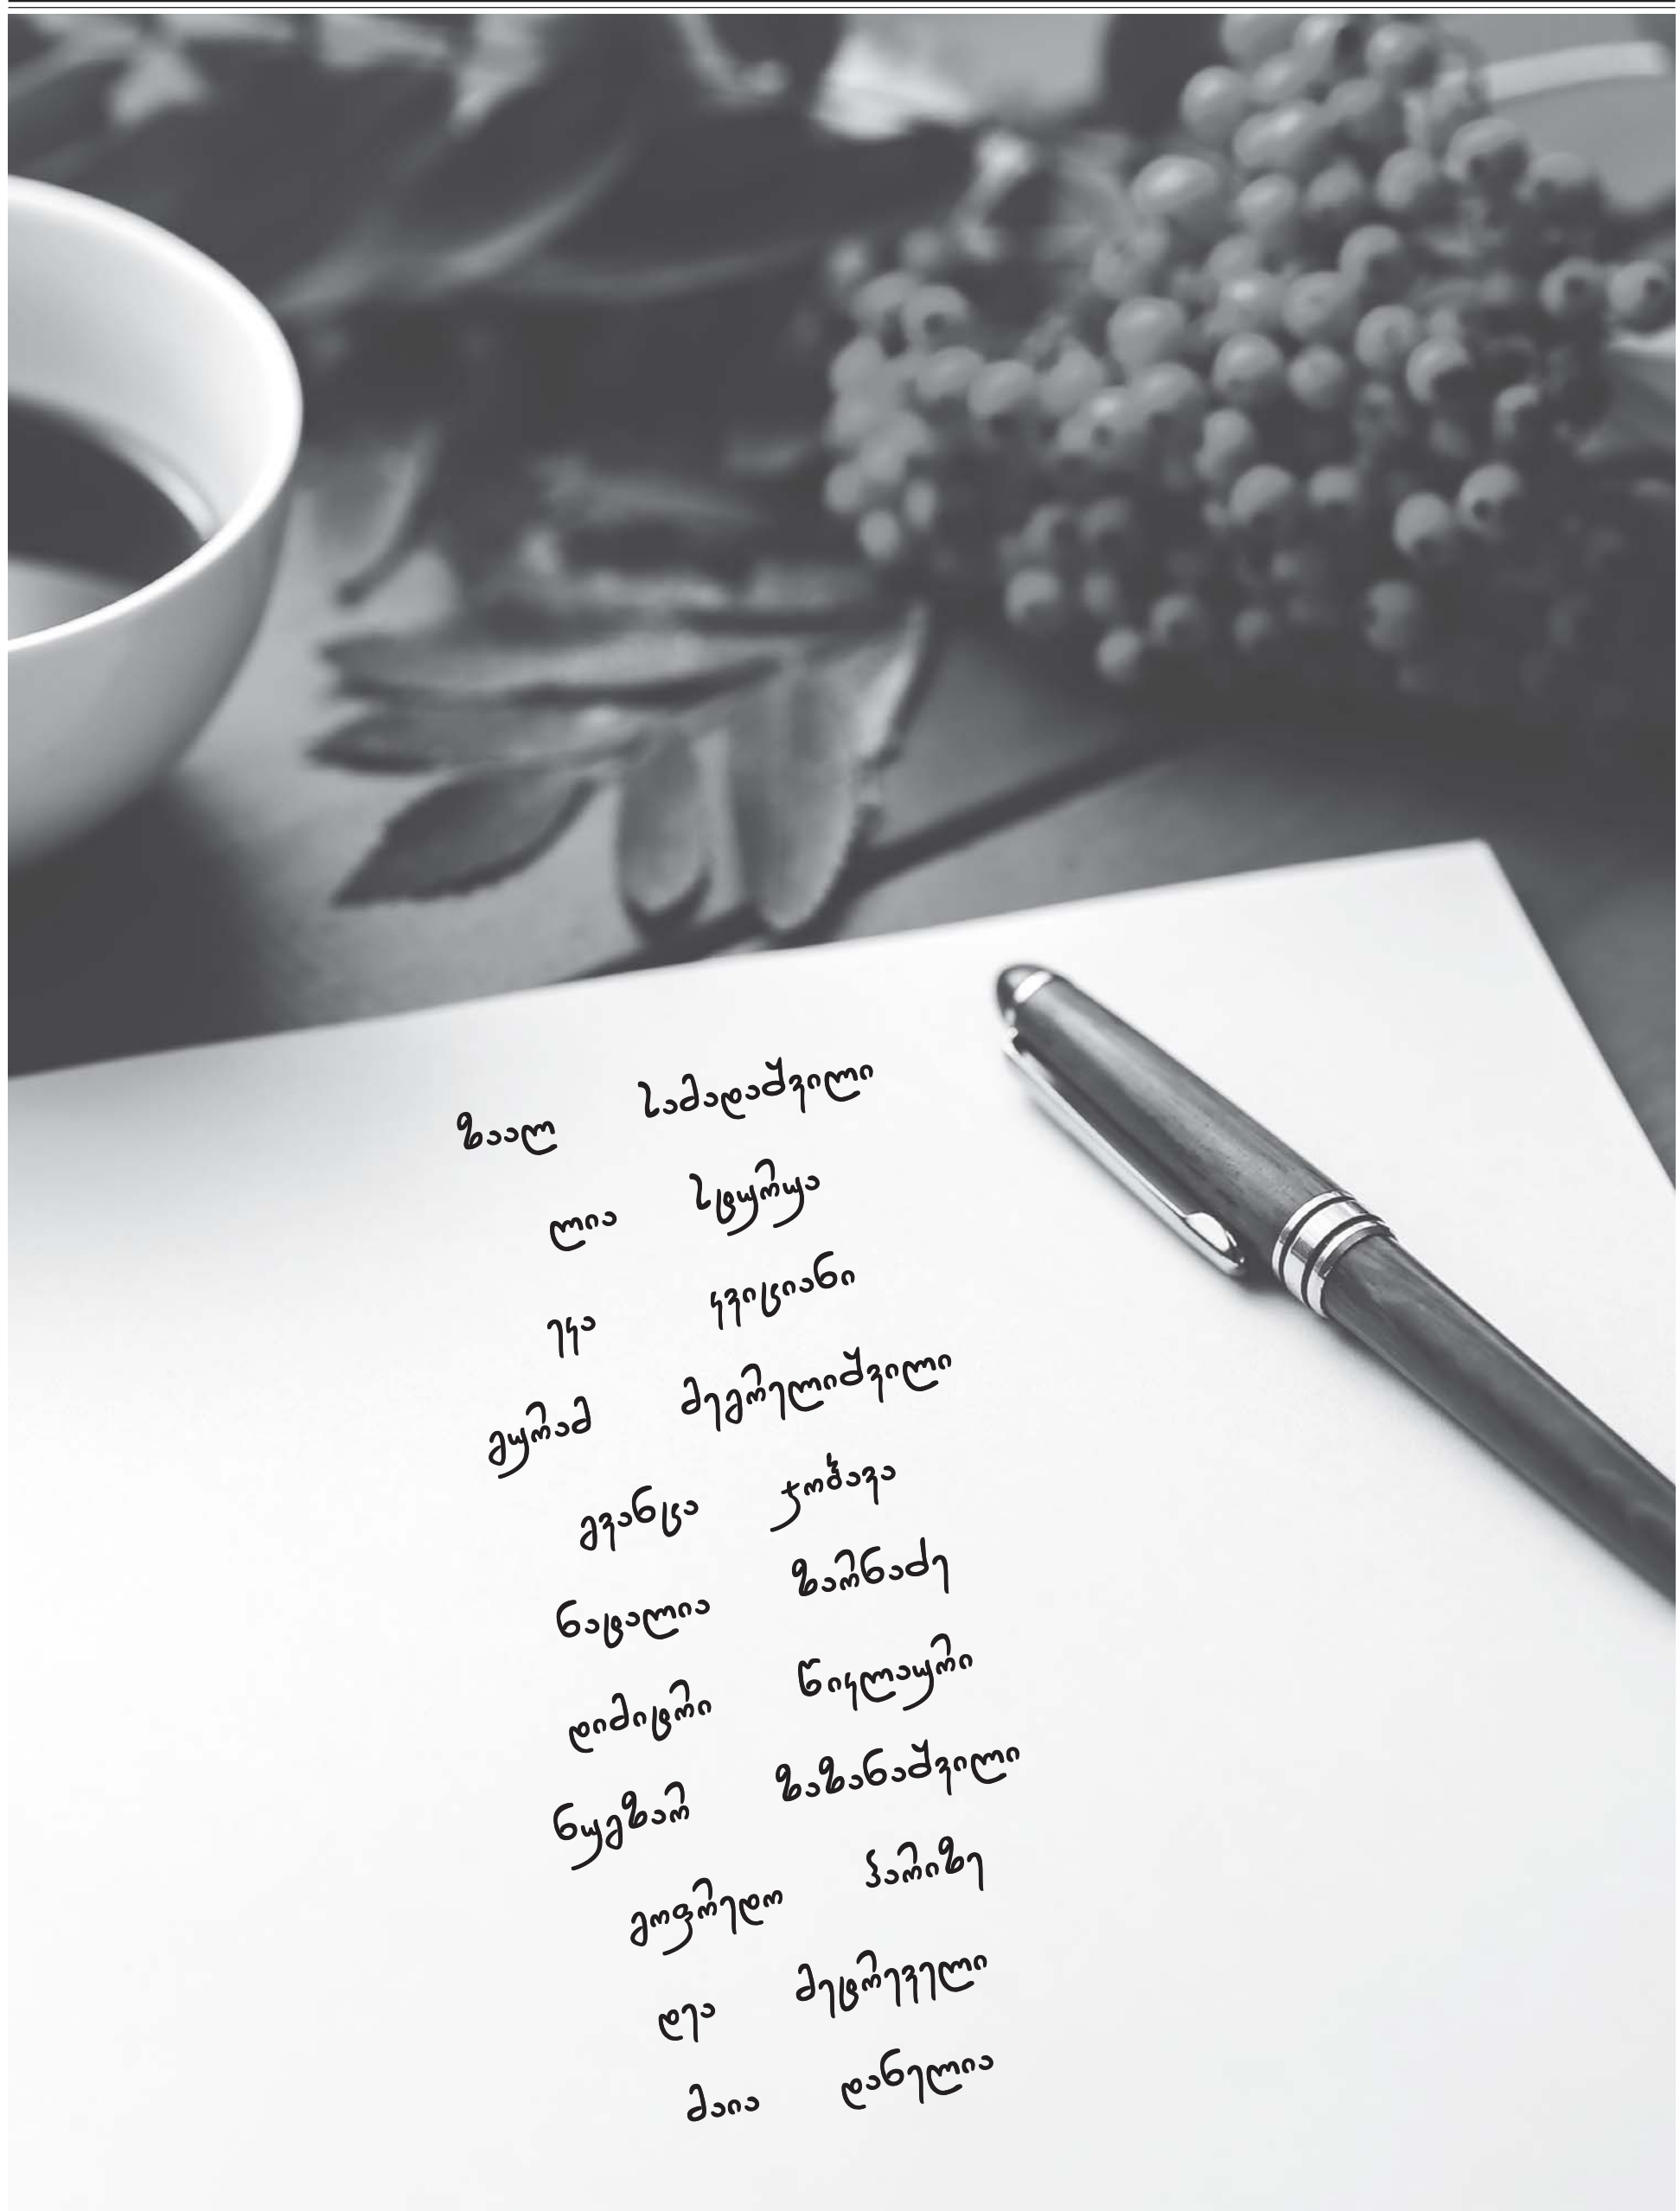 ზაალ სამადაშვილი
ლია სტურუა
ეკა კვიციანი
გურამ მეგრელიშვილი
გვანცა ჯობავა
ნატალია ზარნაძე
დიმიტრი წიკლაური
ნუგზარ ზაზანაშვილი
გოფრედო პარიზე
დეა მეტრეველი
მაია დანელია